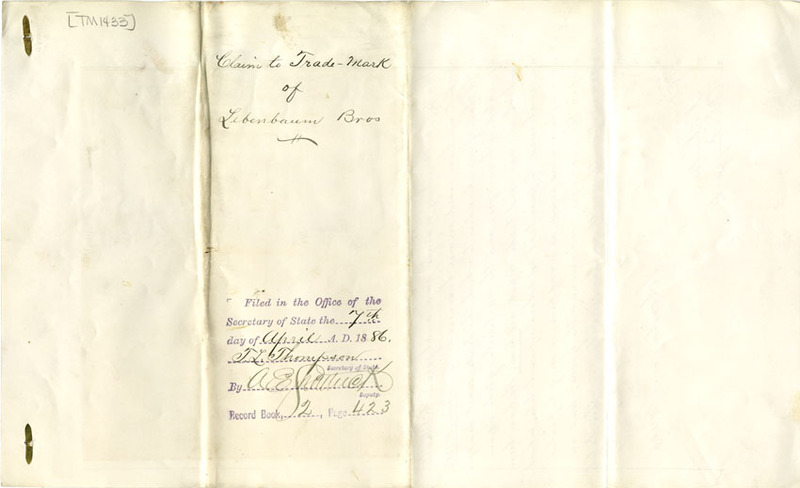 [TM1433]
Claim to Trade-Mark
of
Lebenbaum Bros
Filed in the Office of the
Secretary of State the 7th
day of April A. D. 1886.
T. L. Thompson
Secretary of State
By A. E.
Deputy.
Record Book, 12, Page 423